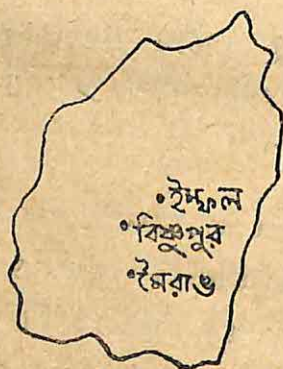 ইম্ফল
বিষ্ণুপুর
মৈরাঙ